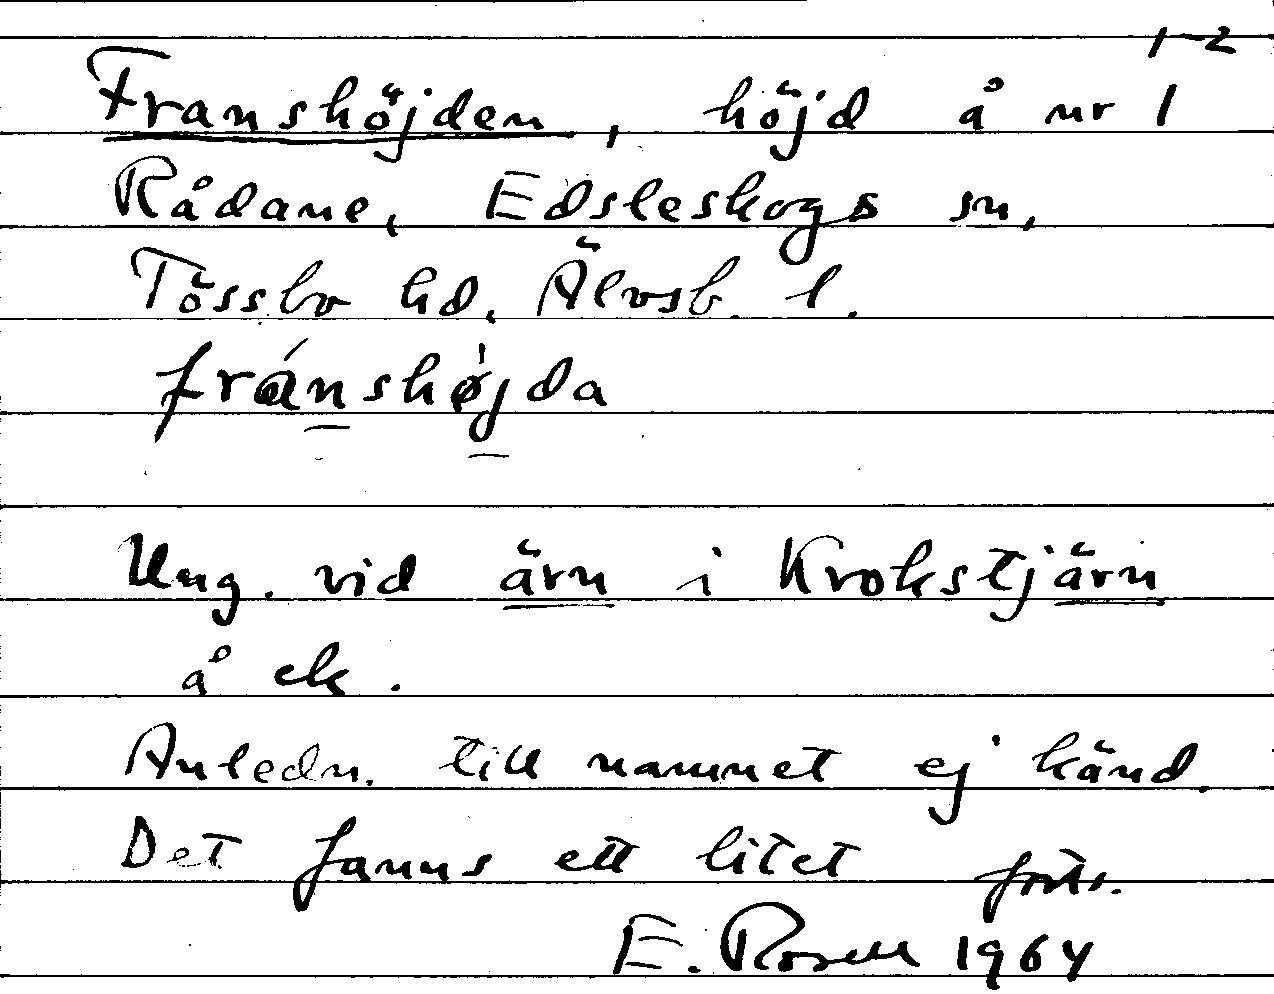 1-2
Franshöjden, höjd å nr 1
Rådane, Edsleskogs sn,
Tössbo hd, Älvsb. l.
fránshø̀jda
Ung. vid ärn i Krokstjärn
å ek.
Anledn. till namnet ej känd.
Det fanns ett litet forts.
E. Rosell 1964